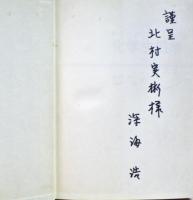 謹呈
北村実彬様
深海浩